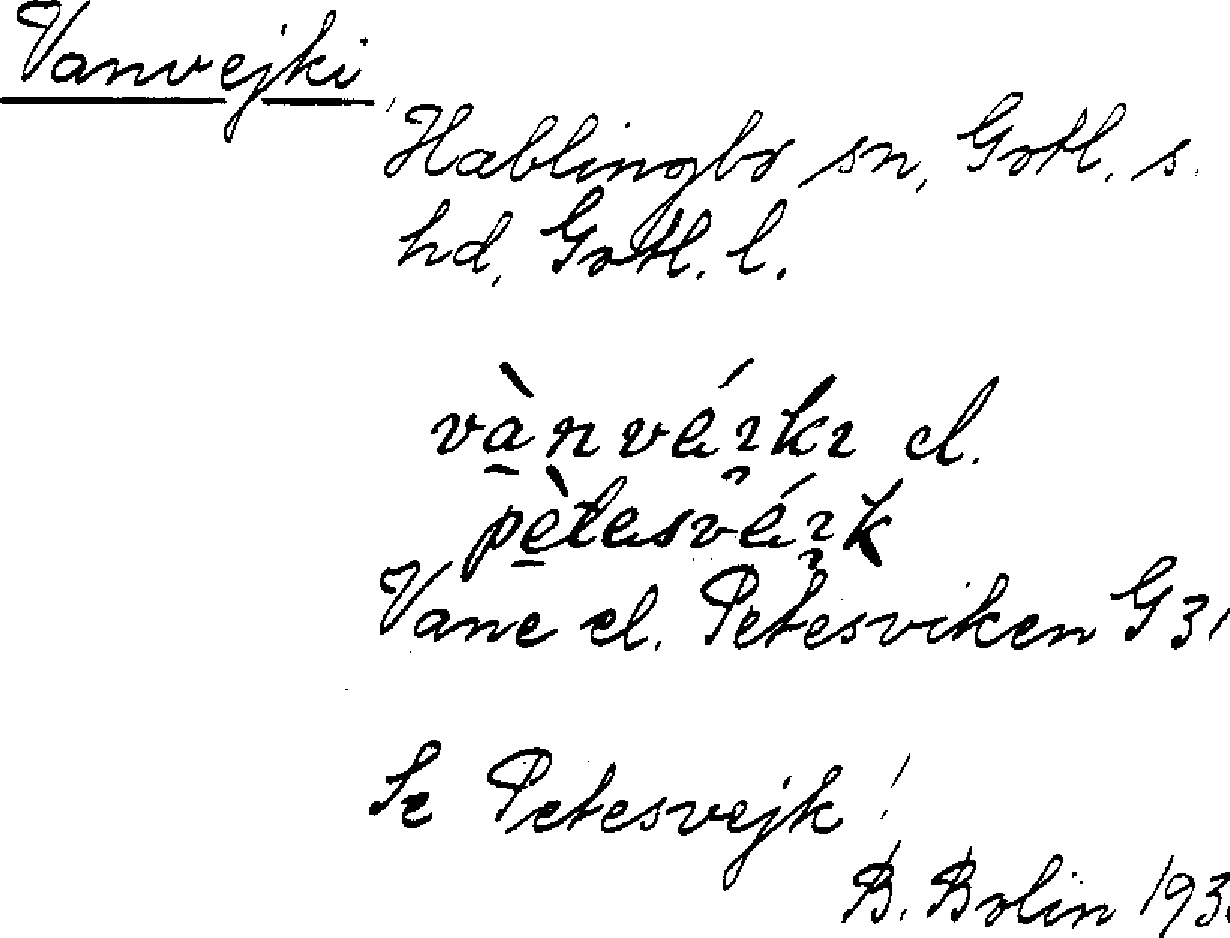 Vanvejki,
Hablingbo sn, Gotl. s.
hd, Gotl. l.
vànvéıkı el.
pètesvéık
Vane el. Petesviken G 31
Se Petesvejk!
B. Bolin 193